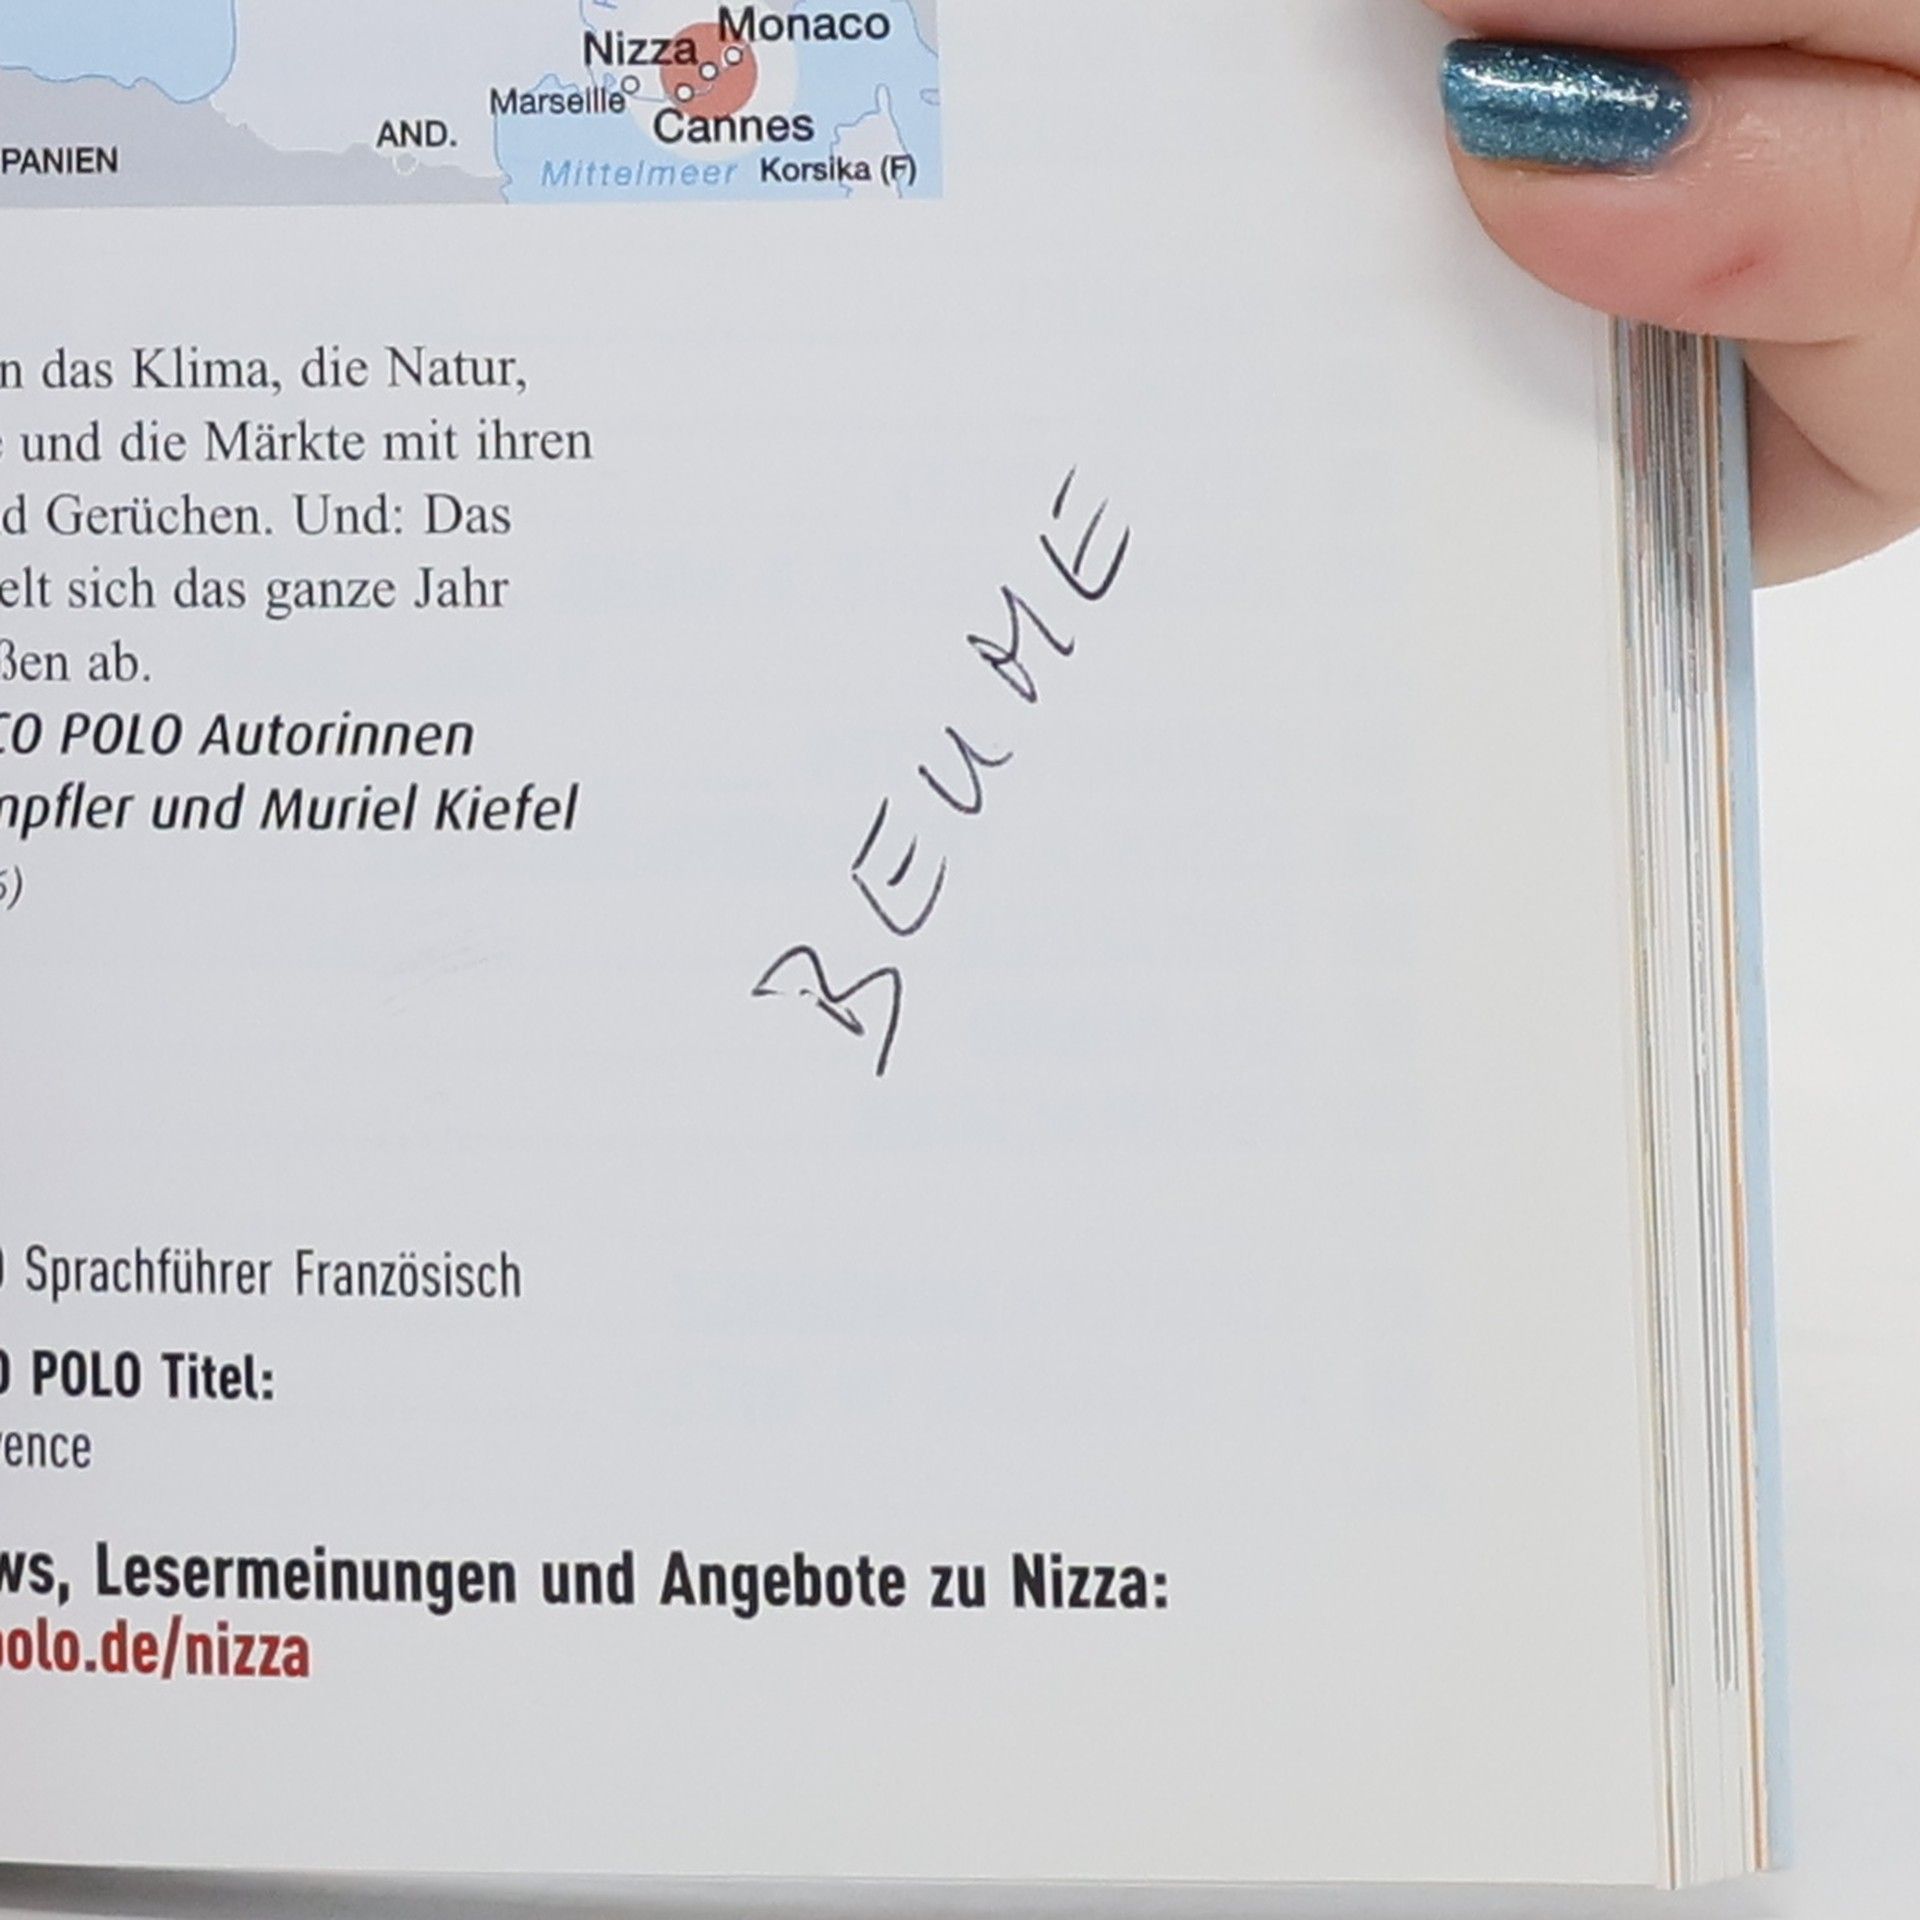 Monaco
Nizza
Marseille
Cannes
AND.
PANIEN
Mittelmeer Korsika (F)
n das Klima, die Natur,
e und die Märkte mit ihren
d Gerüchen. Und: Das
elt sich das ganze Jahr
ßen ab.
CO POLO Autorinnen
mpfler und Muriel Kiefel
)
BEUME
Sprachführer Französisch
O POLO Titel:
ence
ws, Lesermeinungen und Angebote zu Nizza:
polo.de/nizza